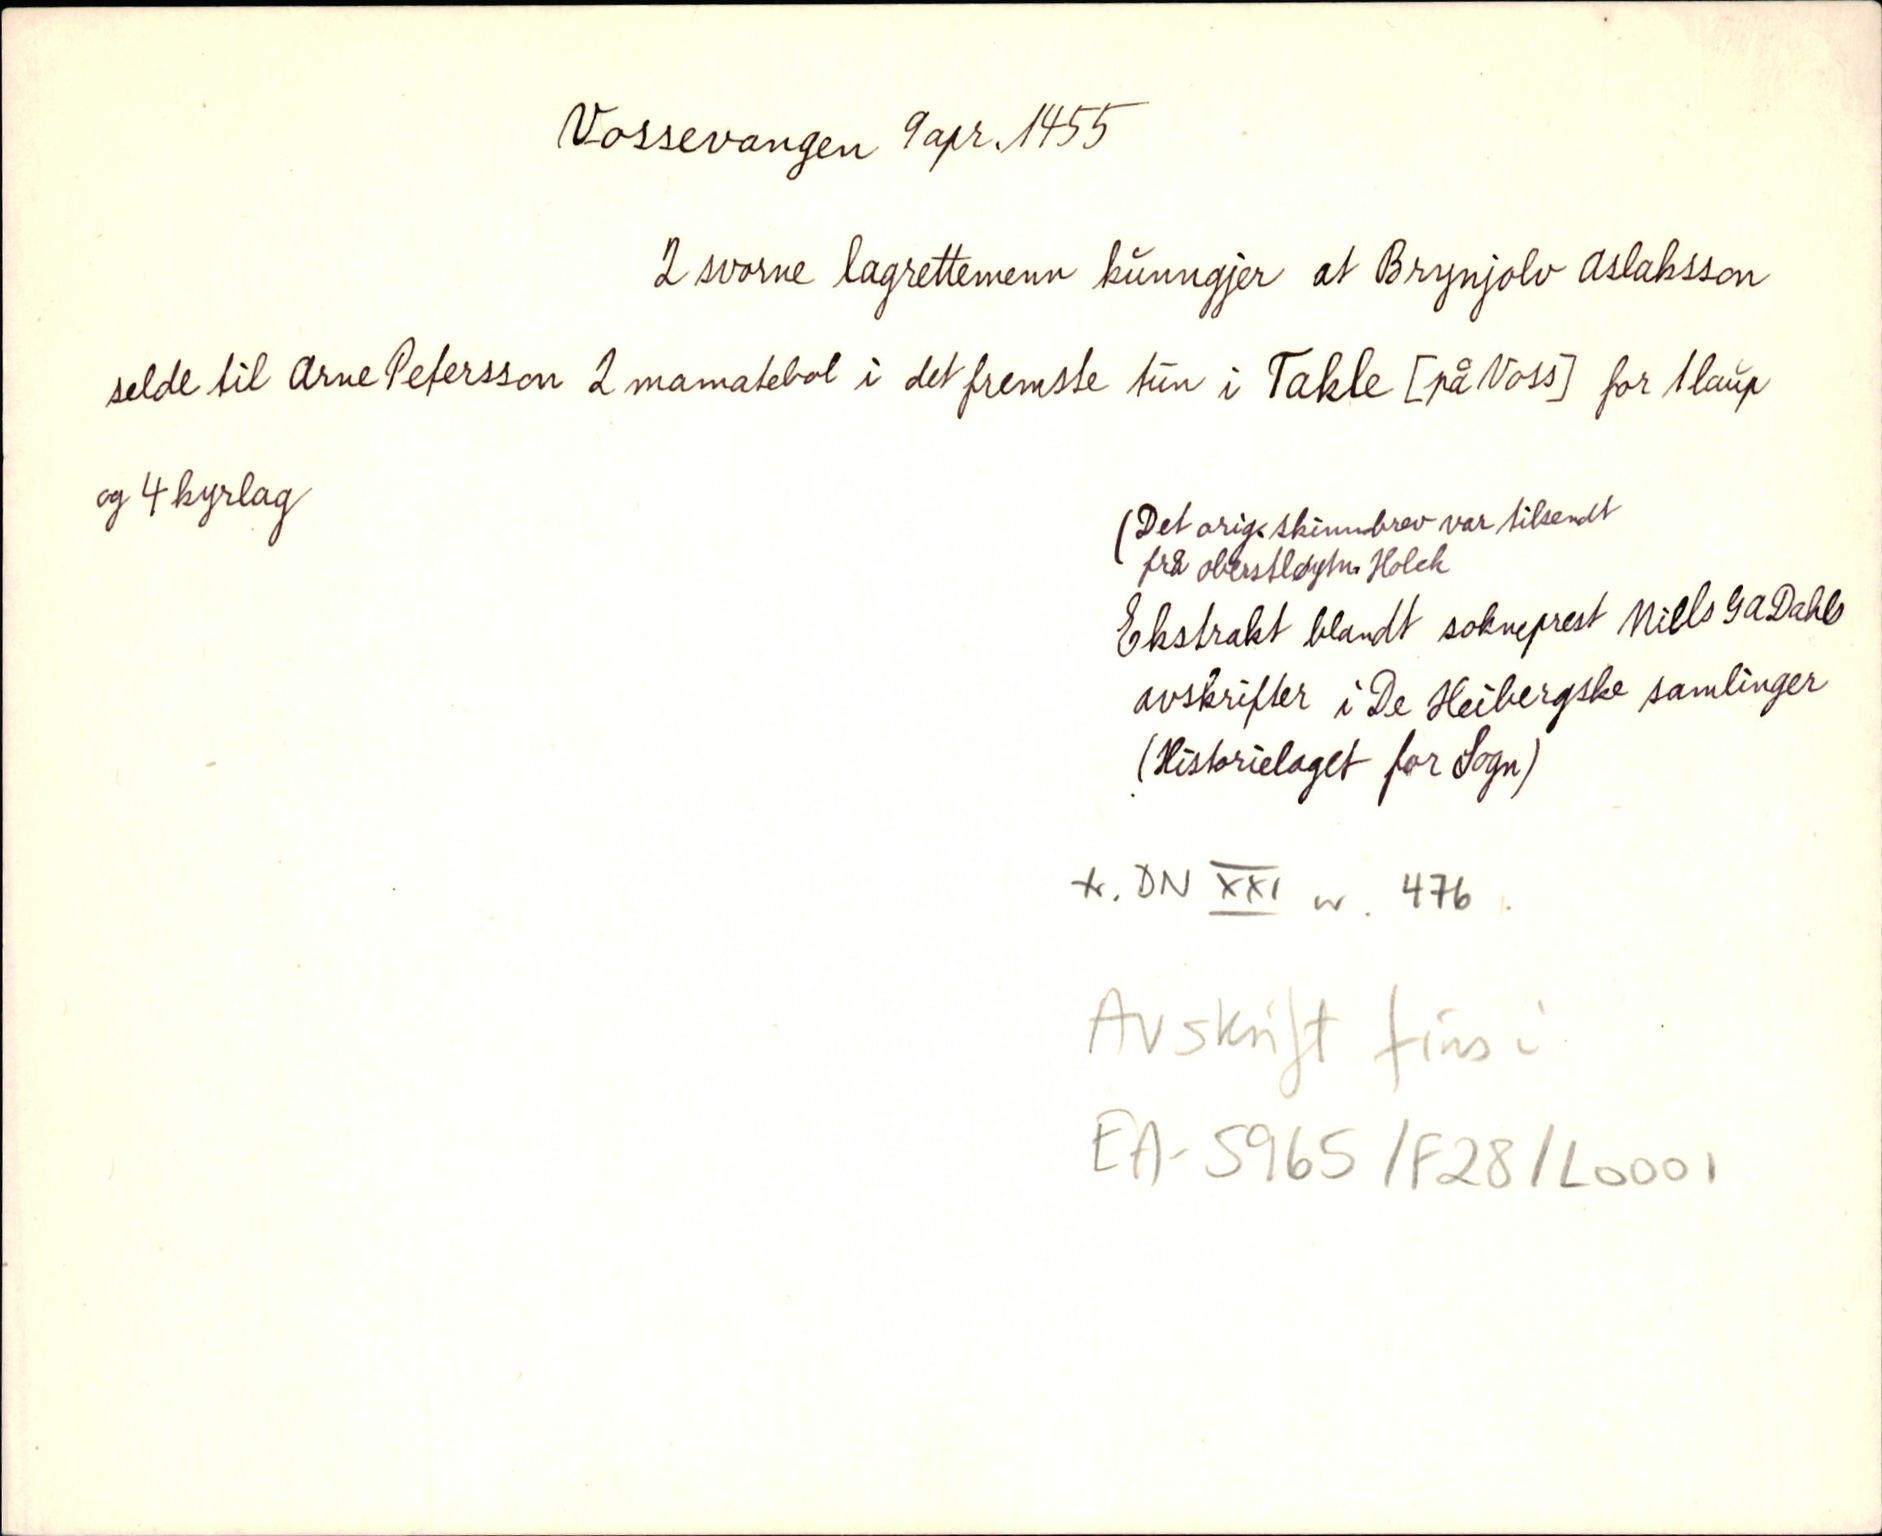 Vossevangen 9 apr. 1455
2 svorne lagrettemenn kŭnngjer at Brynjolv Aslaksson
selde til Arne Petersson 2 mamatebol i det fremste tŭn i Takle [på Voss] for 1 laŭp
og 4 kyrlag
(Det orig. skinnbrev var tilsendt
frå oberstløytn. Holck
Ekstrakt blandt sokneprest Niels GA Dahls
avskrifter i De Heibergske samlinger
(Historielaget for Sogn)
tr. DN XXI nr. 476.
Avskrift fins i
EA-5965/F28/L0001